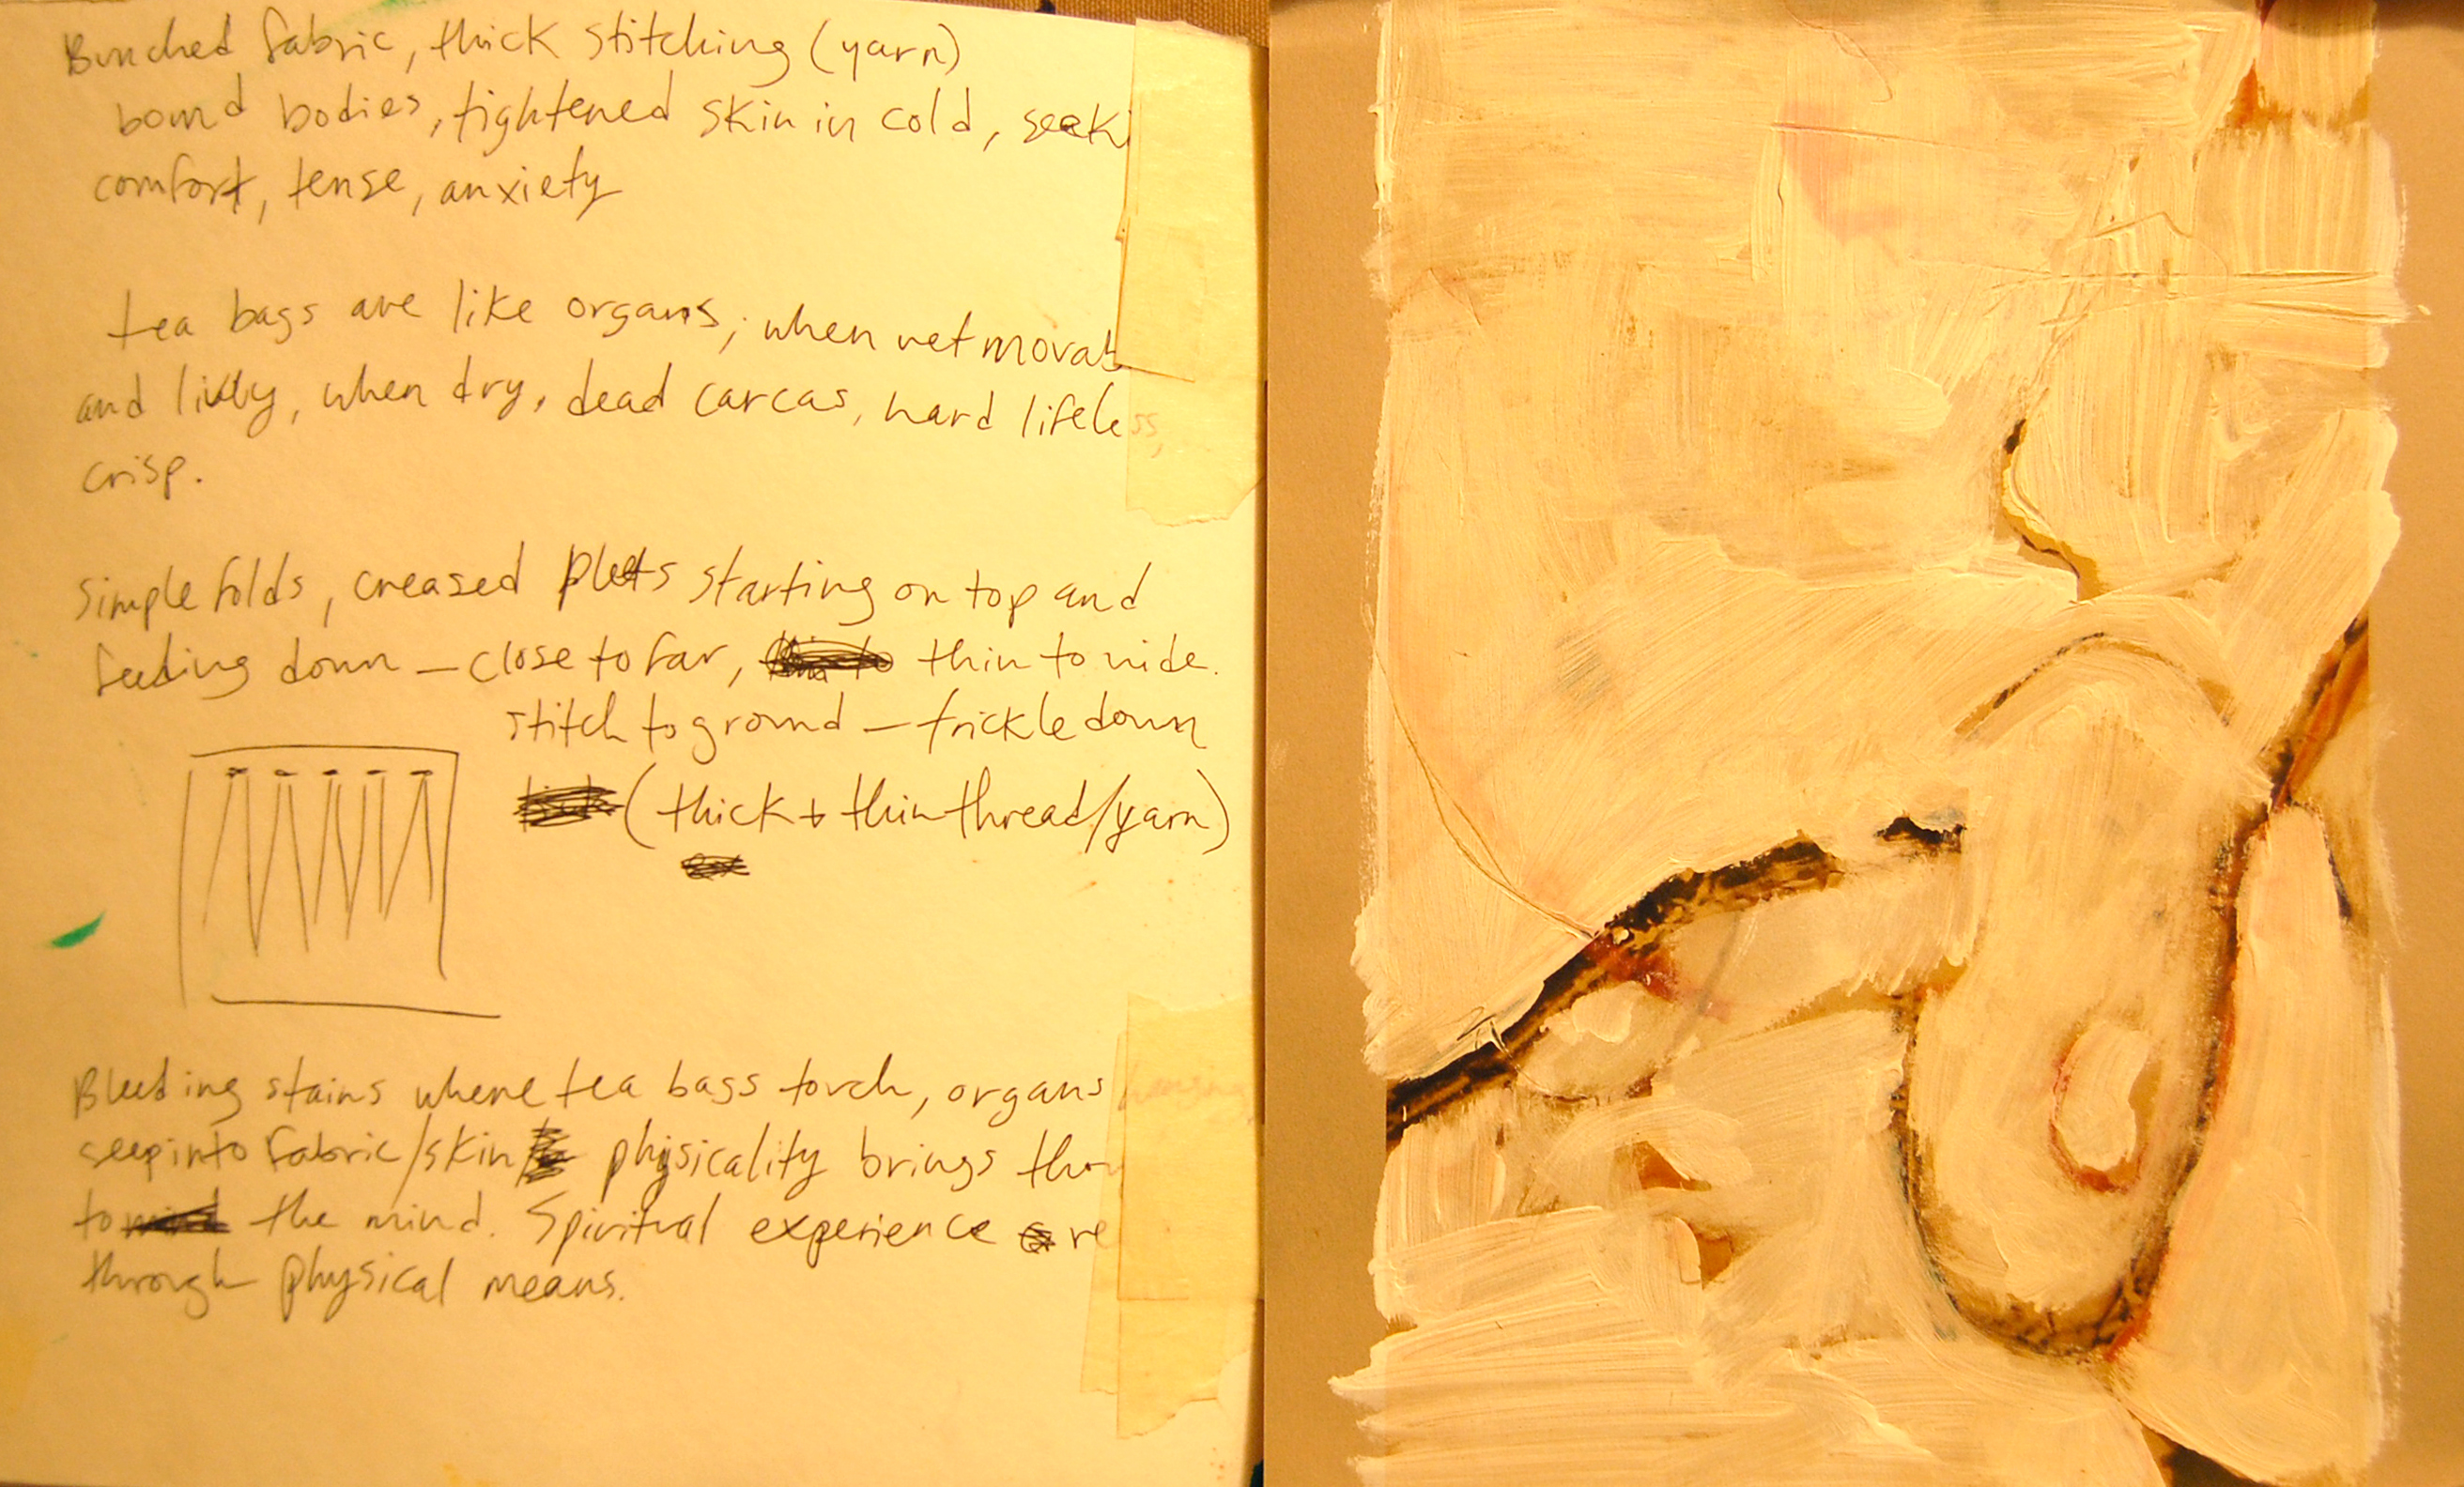 Bunched fabric, thick stitching (yarn)
bound bodies, tightened skin in cold, seeki
comfort, tense, anxiety
tea bags are like organs, when wet movab
and lively, when dry, dead carcas, hard lifeless,
crisp.
Simple folds, creased plets starting on top and
feeding down – close to far, thin to wide.
stitch to ground – trickle down
(thick + thin thread/yarn)
Bleeding stains where tea bags touch, organs
seep into fabric/skin physicality brings thou
to the mind. Spiritual experience re
through physical means.